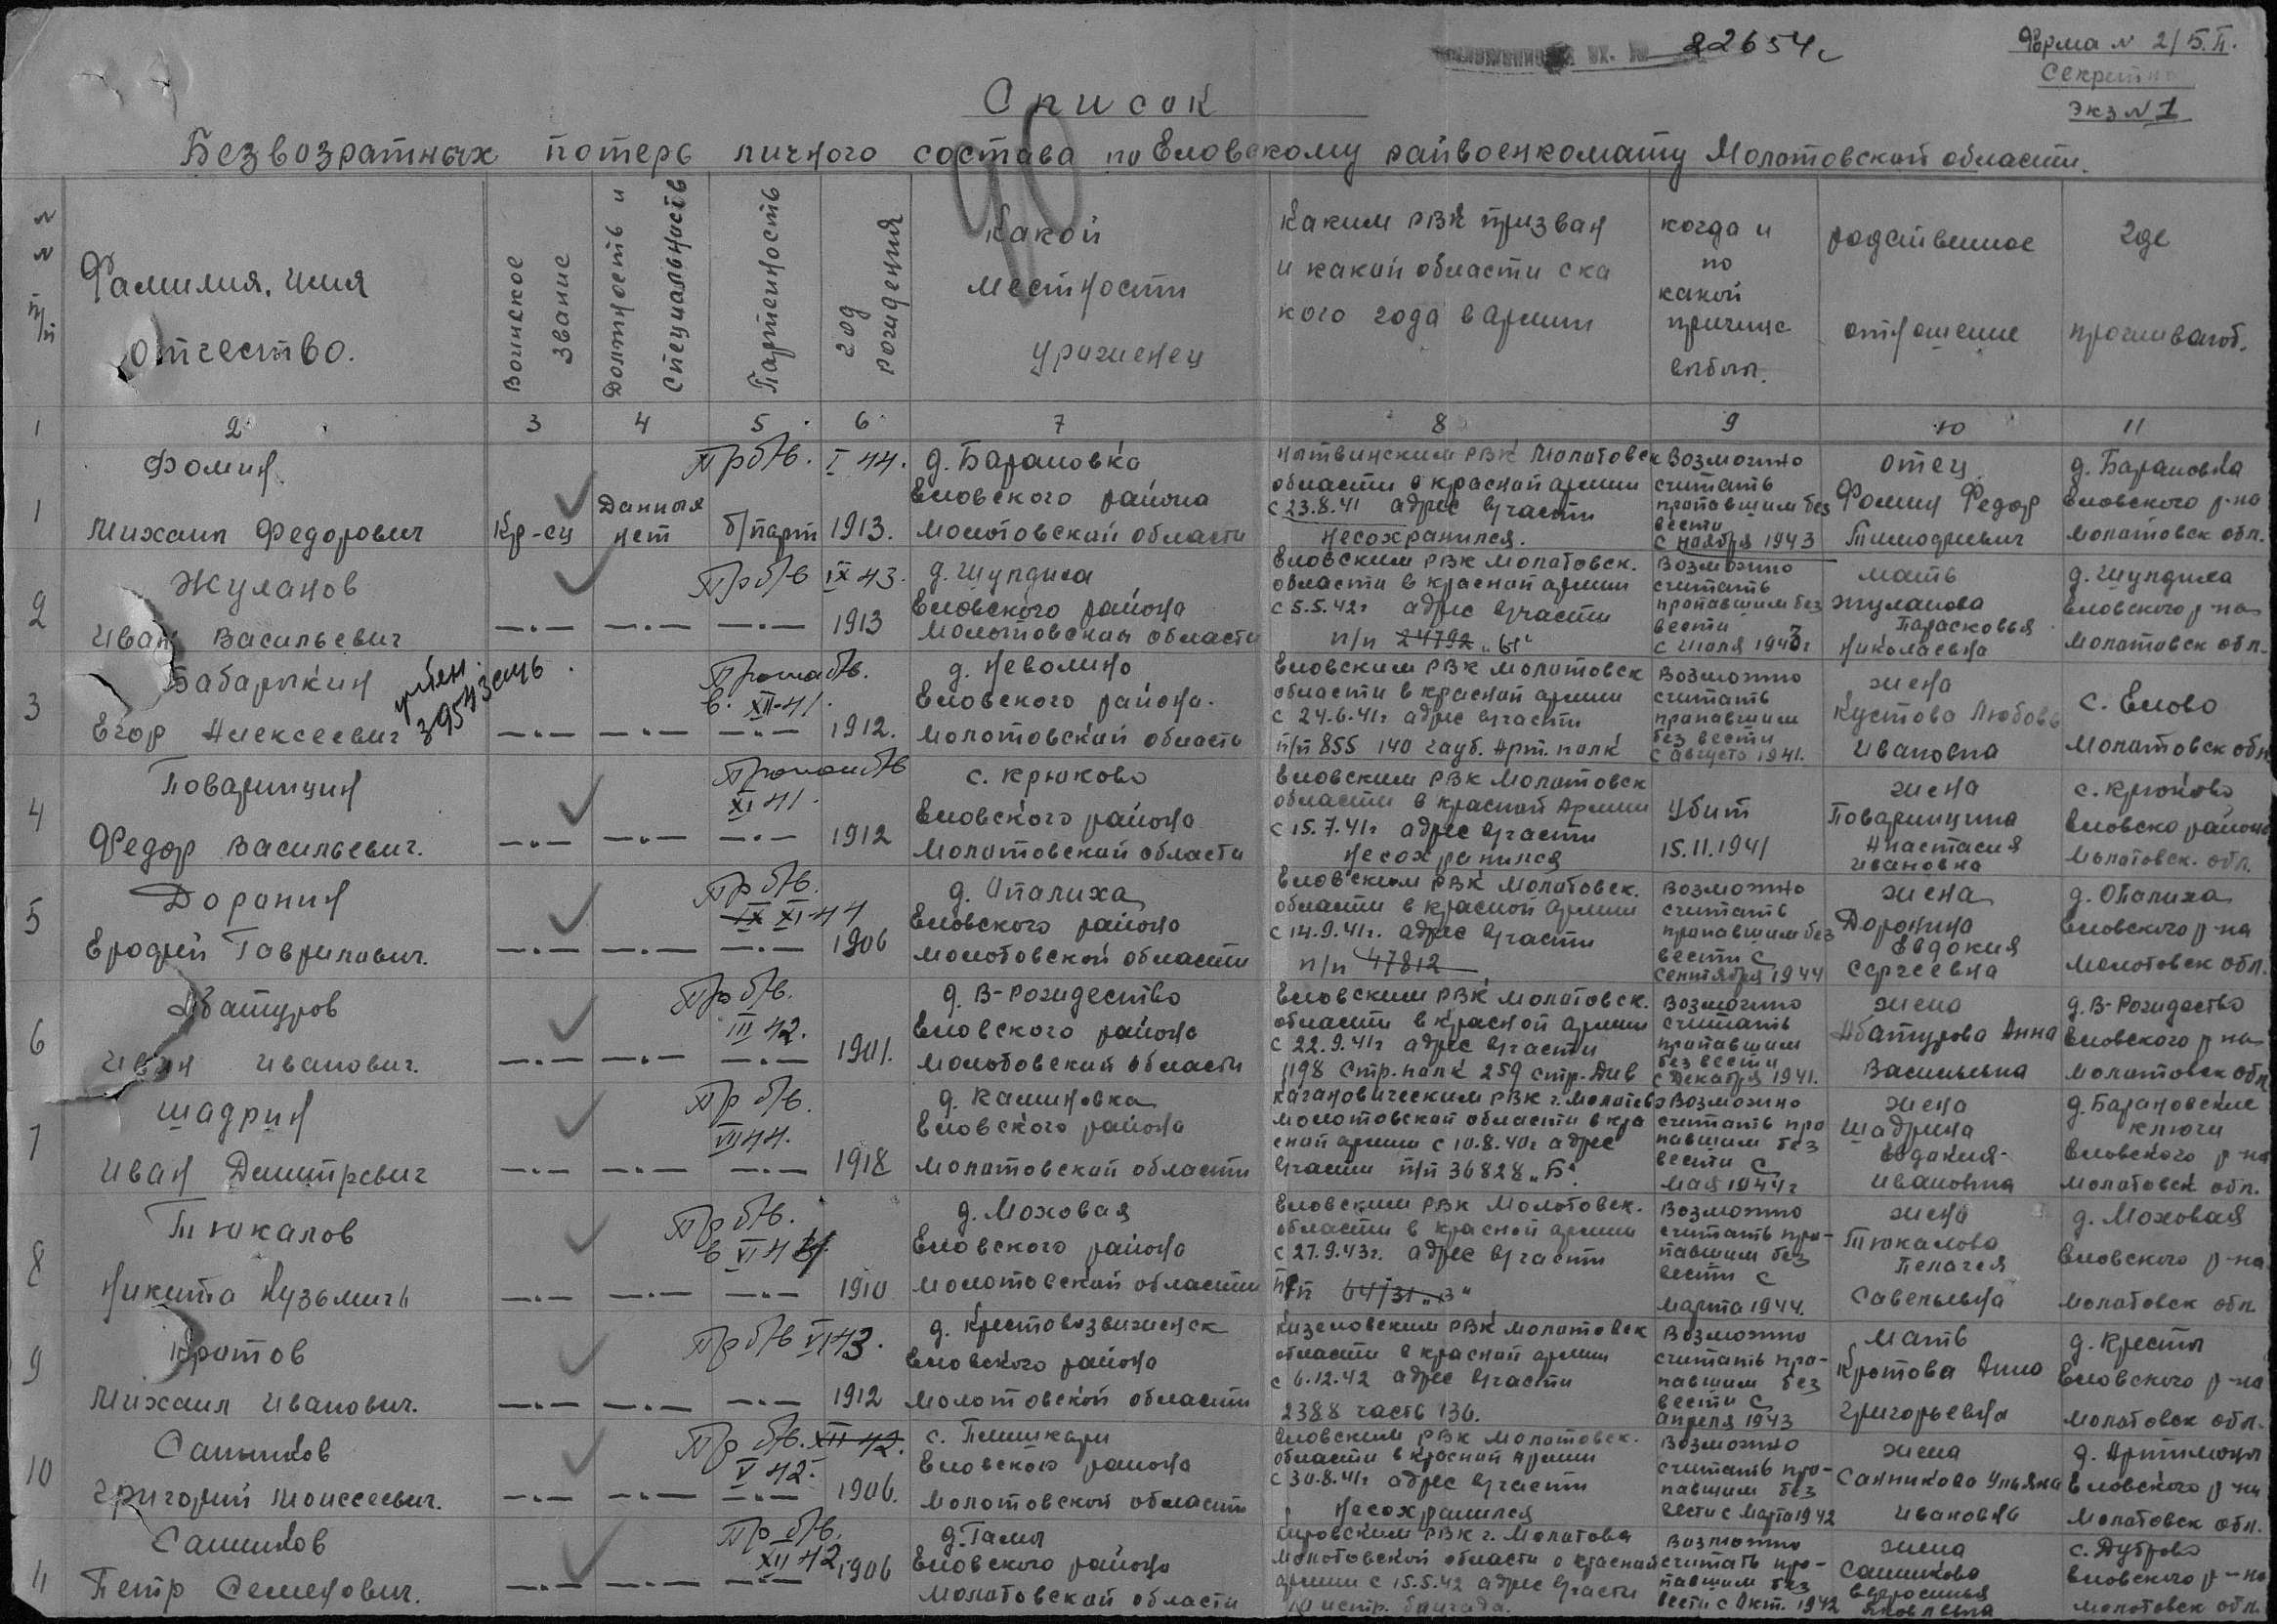 22654с
Форма № 2/5.П.
Секретно
Экз № 1
Список
Безвозратных потерь личного состава по Еловскому райвоенкомату Молотовской области.
№ № п/п
Фамилия, имя
отчество.
Воинское звание
Должность и специальность
Партейность
год рождения
Какой
местности
уроженец
Каким РВК призван
и какой области с ка
кого года в армии
когда и
по
какой
причине
выбыл.
родственное
отношение
где
проживают.
1 2 3 4 5 6 7 8 9 10 11
1
Фомин
Михаил Федорович
Кр-ец
Данных
нет
Пр б/в. I 44.
б/парт
1913.
д. Барановка
Еловского района
Молотовской области
Нытвинским РВК Молотовск
области в красной армии
с 23.8.41 адрес в/части
несохранился.
Возможно
считать
пропавшим без
вести
с ноября 1943
отец
Фомин Федор
Тимофиевич
д. Барановка
Еловского р-на
Молотовск обл.
2
Жуланов
Иван Васильевич
—.— —.— —.—
Пр б/в IX 43.
1913
д. Шулдиха
Еловского района
Молотовской области
Еловским РВК Молотовск.
области в красной армии
с 5.5.42г адрес в/части
п/п 24792
Возможно
считать
пропавшим без
вести
с июля 1943г
мать
Жуланова
Парасковья
Николаевна
д. Шулдиха
Еловского р-на
Молотовск обл.
3
Бабарыкин
Егор Алексеевич
—.— —.— —.—
Пропал б/в.
в. XII-41.
1912.
д. Неволино
Еловского района.
Молотовской область
Еловским РВК Молотовск
области в красной армии
с 24.6.41г адрес в/части
п/п 855 140 гауб. Арт. полк
Возможно
считать
пропавшим
без вести
с августа 1941.
жена
Кустова Любовь
Ивановна
с. Елово
Молотовск обл
4
Поварницин
Федор Васильевич.
—.— —.— —.—
Пропал б/в
XI 41.
1912
с. Крюково
Еловского района
Молотовской области
Еловским РВК Молотовск
области в красной Армии
с 15.7.41г адрес в/части
несохранился
Убит
15.11.1941
жена
Поварницина
Анастасия
Ивановна
с. Крюково
Еловско района
Молотовск. обл.
5
Доронин
Ерофей Гаврилович.
—.— —.— —.—
Пр б/в.
IX XI-44
1906
д. Опалиха
Еловского района
Молотовской области
Еловским РВК Молотовск.
области в красной армии
с 14.9.41г. адрес в/части
п/п 47812
Возможно
считать
пропавшим без
вести с
сентября 1944
жена
Доронина
Евдокия
Сергеевна
д. Опалиха
Еловского р-на
Молотовск обл.
6
Абатуров
Иван Иванович.
—.— —.— —.—
Пр б/в.
III 42.
1901.
д. В-Рождество
Еловского района
Молотовской области
Еловским РВК Молотовск.
области в красной армии
с 22.9.41г адрес в/части
1198 стр. полк 259 стр. Див
Возможно
считать
пропавшим
без вести
с декабря 1941.
жена
Абатурова Анна
Васильевна
д. В-Рождество
Еловского р на
Молотовск обл
7
Шадрин
Иван Дмитревич
—.— —.— —.—
Пр б/в.
VII 44.
1918
д. Калиновка
Еловского района
Молотовской области
Кагановическим РВК г. Молотов
Молотовской области в кра
сной армии с 10.8.40г адрес
в/части п/п 36828 „Б“.
Возможно
считать про
павшим без
вести с
мая 1944г
жена
Шадрина
Евдакия
Ивановна
д. Барановские
ключи
Еловского р-на
Молотовск обл.
8
Тюкалов
Никита Кузьмичь
—.— —.— —.—
Пр б/в.
в VI 44
1910
д. Моховая
Еловского района
Молотовской области
Еловским РВК Молотовск.
области в красной армии
с 27.9.43г. адрес в/части
п/п
Возможно
считать про-
павшим без
вести с
марта 1944.
жена
Тюкалова
Пелагея
Савельевна
д. Моховая
Еловского р-на
Молотовск обл
9
Кротов
Михаил Иванович.
—.— —.— —.—
Пр б/в VI 43.
1912
д. Крестовозвиженск
Еловского района
Молотовской области
Кизеловским РВК Молотовск
области в красной армии
с 6.12.42 адрес в/части
2388 часть 136.
Возможно
считать про-
павшим без
вести с
апреля 1943
мать
Кротова Анна
Григорьевна
д. Кресты
Еловского р-на
Молотовск обл.
10
Санников
Григорий Моисеевич.
—.— —.— —.—
Пр б/в. XII 42.
V 42.
1906.
с. Плишкари
Еловского района
Молотовской области
Еловским РВК Молотовск.
области в красной Армии
с 30.8.41г адрес в/части
несохранился
Возможно
считать про-
павшим без
вести с Марта 1942
жена
Санникова Ульяна
Ивановна
Еловского р-на
Молотовск обл.
11
Санников
Петр Семенович.
—.— —.— —.—
Пр б/в.
XII 42
1906
д. Галы
Еловского района
Молотовской области
Кировским РВК г. Молотова
Молотовской области в красной
армии с 15.5.42 адрес в/части
Возможно
считать про-
павшим без
вести с Окт. 1942
жена
Санникова
с. Дуброво
Еловского р-на
Молотовск обл.